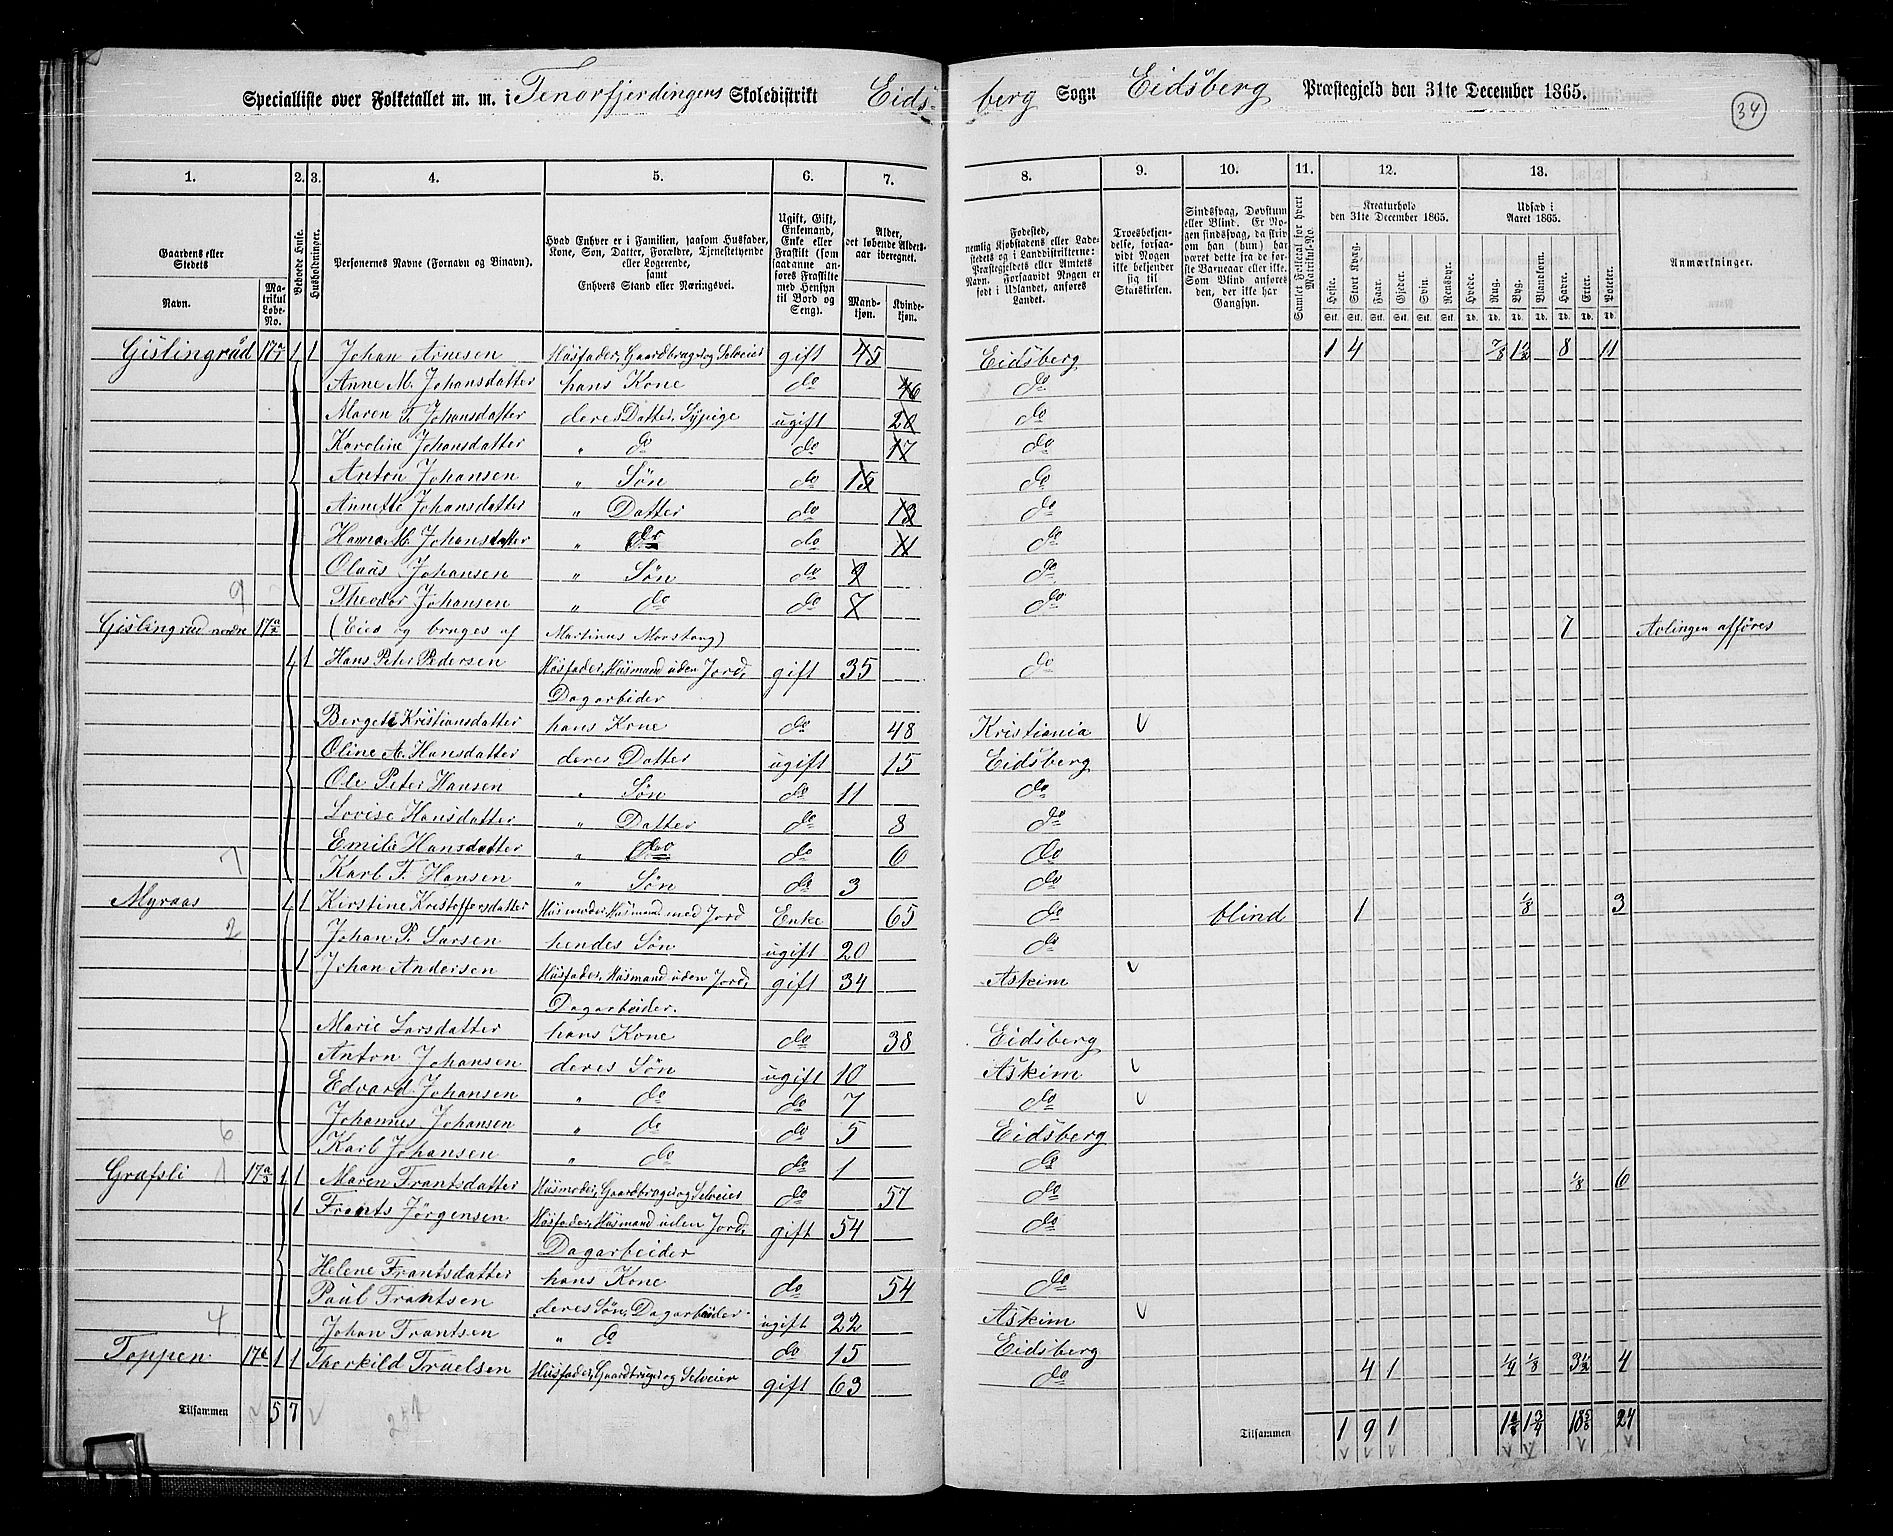 Specialliste over Folketallet m. m. i Tenorfjerdingens Skoledistrikt Eids-
berg Sogn Eidsberg Præstegjeld den 31te December 1865.
34
1. 2. 3. 4. 5. 6. 7. 8. 9. 10. 11. 12. 13.
Gaardens eller Stedets
Navn.
Matrikul Løbe-No.
Beboede Huse.
Husholdninger.
Personernes Navne (Fornavn og Binavn).
Hvad Enhver er i Familien, saasom Husfader, Kone, Søn, Datter, Forældre, Tjenestetyende eller Logerende, samt Enhvers Stand eller Næringsvei.
Ugift, Gift, Enkemand, Enke eller Fraskilt (som saadanne anføres Fraskilte med Hensyn til Bord og Seng).
Alder, det løbende Alders-aar iberegnet.
Mandkjøn.
Kvindekjøn.
Fødested, nemlig Kjøbstadens eller Ladestedets og i Landdistrikterne: Præstegjeldets eller Amtets Navn. Forsaavidt Nogen er født i Udlandet, anføres Landet.
Troesbekjendelse, forsaavidt Nogen ikke bekjender sig til Statskirken.
Sindssvag, Døvstum eller Blind. Er Nogen sindssvag, da skriv om han (hun) har været dette fra de første Barneaar eller ikke. Som Blind anføres den, der ikke har Gangsyn.
Samlet Folketal for hvert Matrikul-No.
Kreaturhold den 31te December 1865.
Heste. Stort Kvæg. Faar. Gjeder. Svin. Rensdyr.
Stk. Stk. Stk. Stk. Stk. Stk.
Udsæd i Aaret 1865.
Hvede. Rug. Byg. Blandkorn. Havre. Erter. Poteter.
Td. Td. Td. Td. Td. Td. Td.
Anmærkninger.
Gislingrud 17 a/1 1 1 Johan Arnesen Husfader, Gaardbruger og Selveier gift 45 Eidsberg 1 4 7/8 1 1/2 8 11
Anne M. Johansdatter hans Kone do 46 do
Maren T. Johansdatter deres Datter, Sypige ugift 20 do
Karoline Johansdatter " do do 17 do
Anton Johansen " Søn do 15 do
Annette Johansdatter " Datter do 13 do
Hanna M. Johansdatter " do do 11 do
Olaus Johansen " Søn do 9 do
9 Theodor Johansen " do do 7 do
Gislingrud nordre 17 a/2 (Eies og bruges af Martinus Monstang) 7 Avlingen afføres
4 1 Hans Peter Pedersen Husfader, Husmand uden Jord, gift 35 do
Dagarbeider
Bergete Kristiansdatter hans Kone do 48 Kristiania v
Oline A. Hansdatter deres Datter ugift 15 Eidsberg
Ole Peter Hansen " Søn do 11 do
Lovise Hansdatter " Datter do 8 do
7 Emilie Hansdatter " do do 6 do
Karl F. Hansen " Søn do 3 do
Myraas 1 1 Kirstine Kristoffersdatter Husmoder, Husmand med Jord Enke 65 do blind 1 1/8 3
2 Johan P. Larsen hendes Søn ugift 20 do
1 Johan Andersen Husfader, Husmand uden Jord, gift 34 Askim v
Dagarbeider.
Marie Larsdatter hans Kone do 38 Eidsberg
Anton Johansen deres Søn ugift 10 Askim v
Edvard Johansen " do do 7 do v
Johannes Johansen " do do 5 Eidsberg
6 Karl Johansen " do do 1 do
Grafsli 1 17 a/3 1 1 Maren Frantsdatter Husmoder, Gaardbruger og Selveier do 57 do 1/8 6
1 Frants Jørgensen Husfader, Husmand uden Jord, gift 54 do
Dagarbeider
Helene Frantsdatter hans Kone do 54 do
Paul Frantsen deres Søn, Dagarbeider ugift 22 Askim v
4 Johan Frantsen " do do 15 Eidsberg
Toppen 17 b 1 1 Therkild Truelsen Husfader, Gaardbruger og Selveier gift 63 do 4 1 1/4 1/8 3 1/2 4
Tilsammen 5 7 v
Tilsammen 1 9 1 1 3/4 18 5/8 24
v v v v v v v